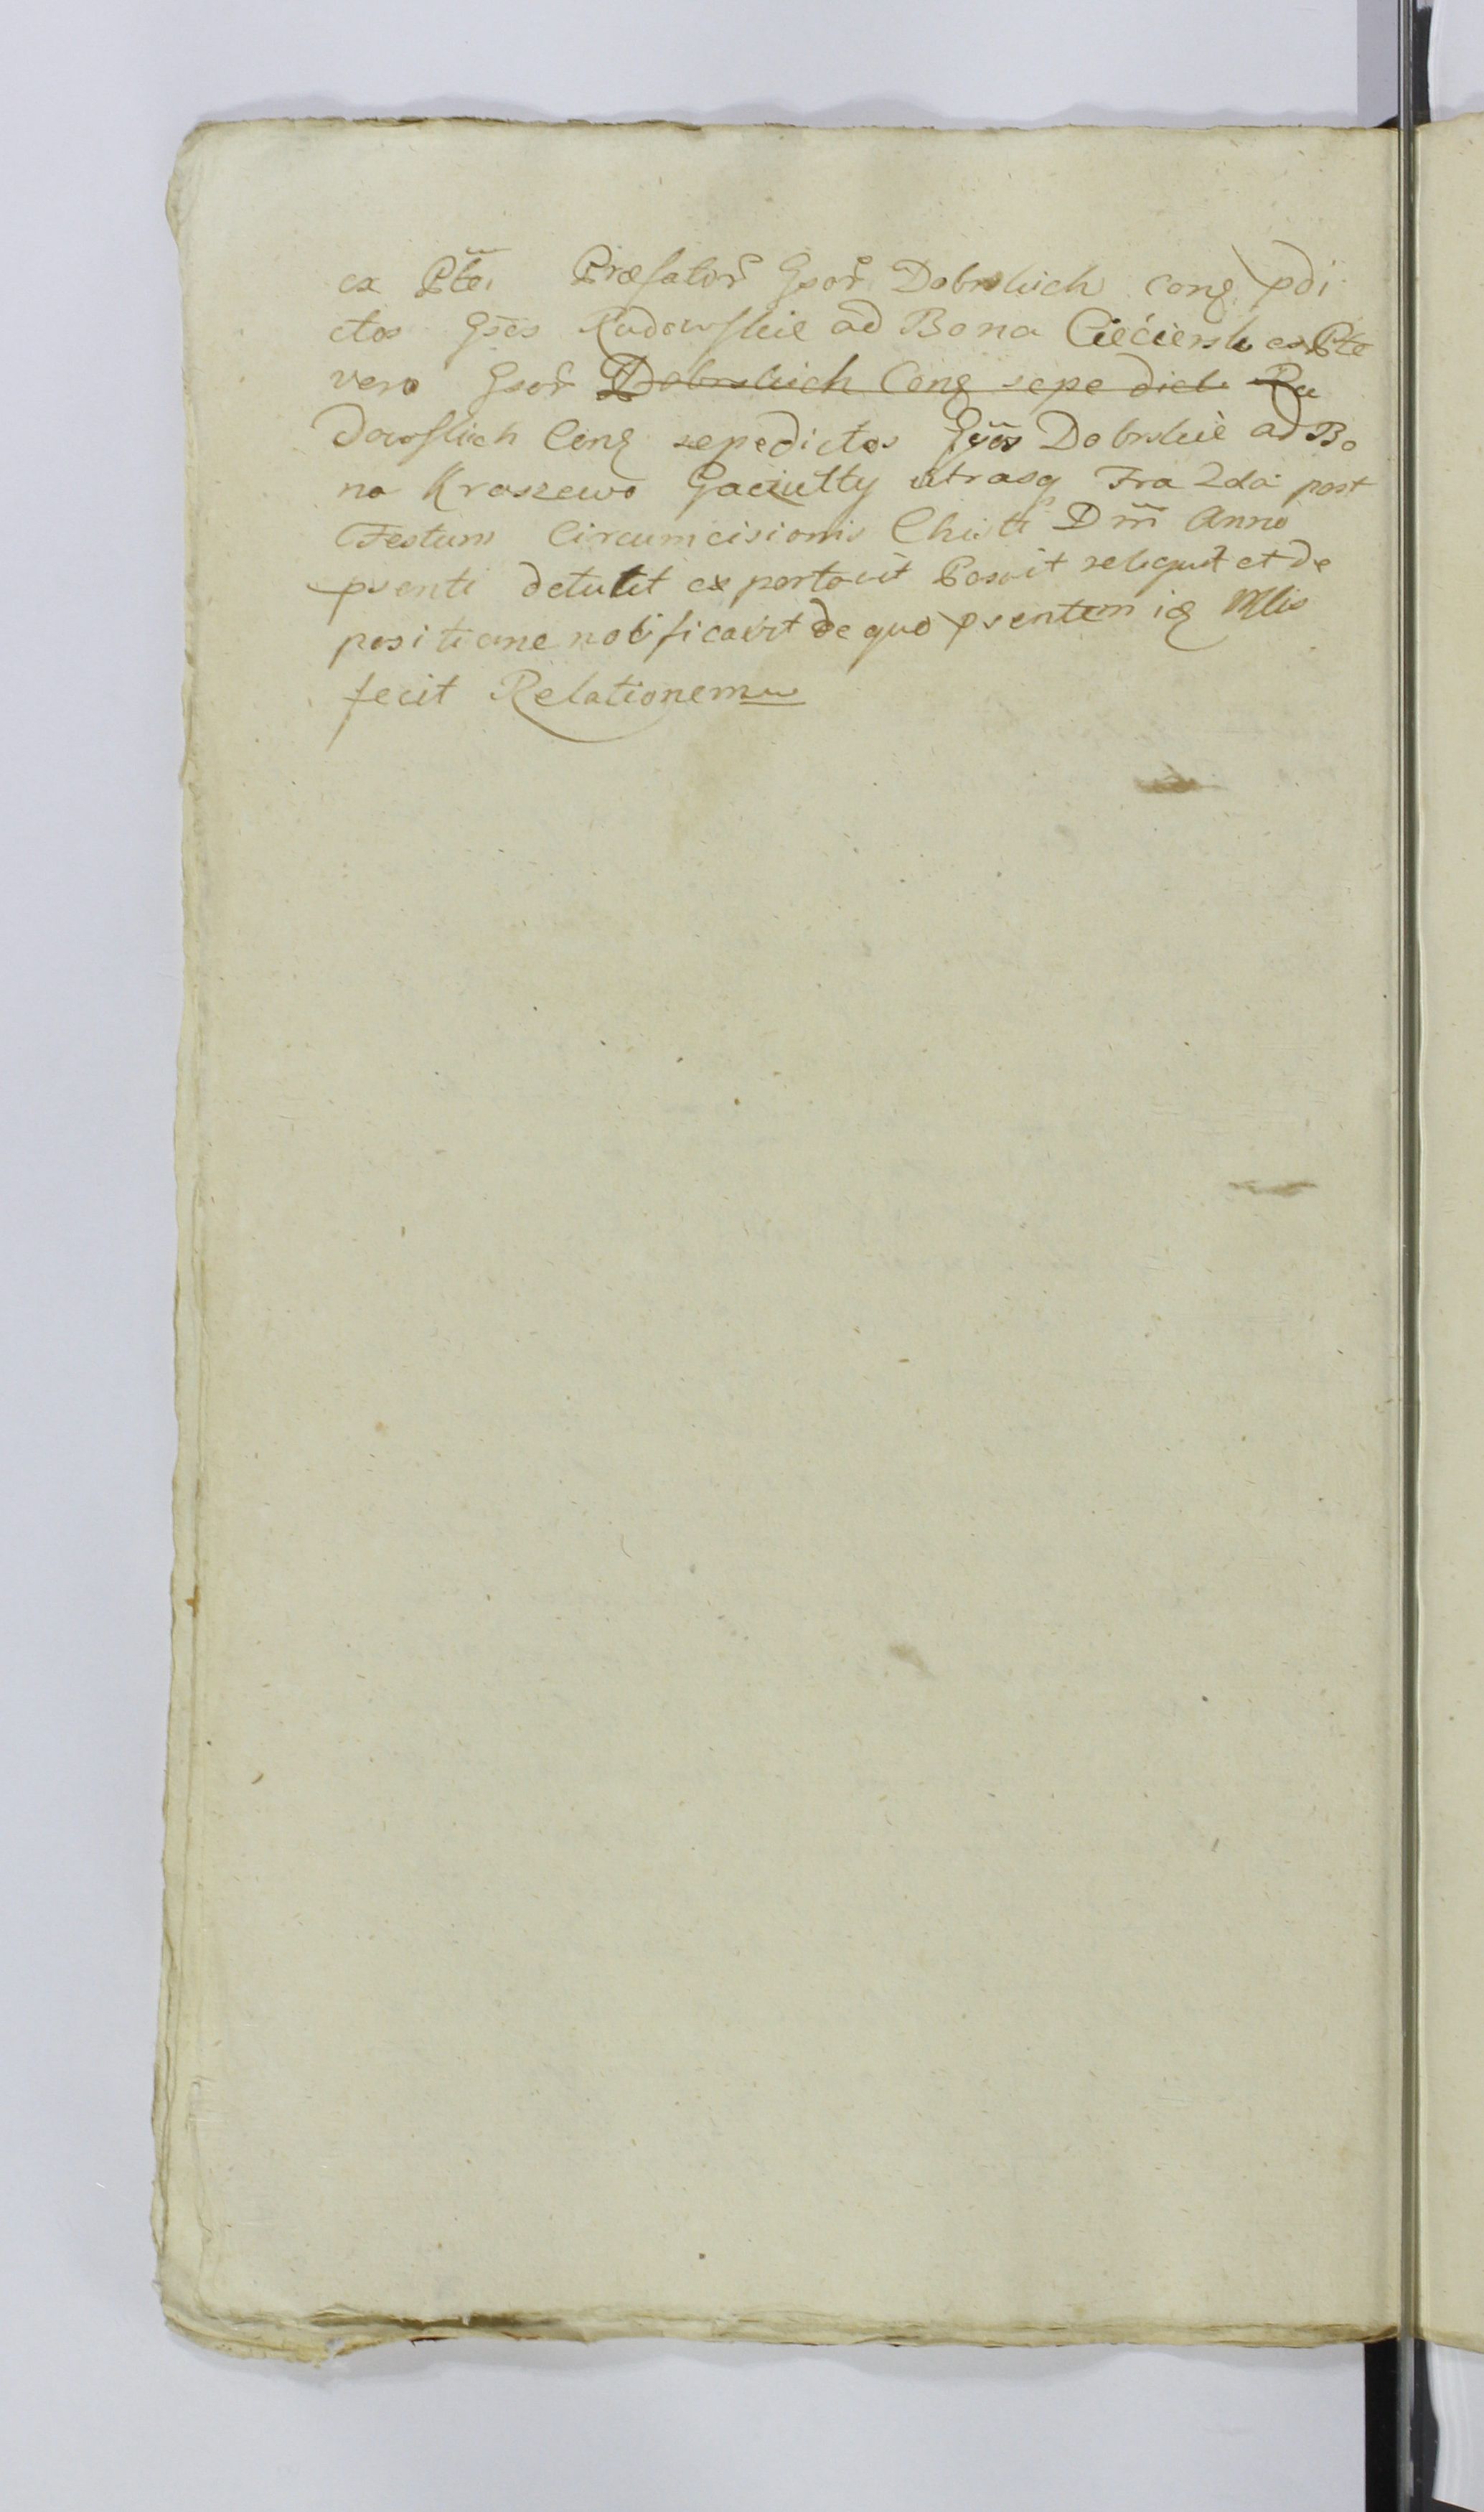 ex Pte Præfator Gsor Dobrskich cong pdi
ctos Gsos Rudowskie ad Bona Ciećiersk ex Pte
vero Gsor Dobrskich Cong sepe dict Ru
dowskich Cong sepedictos Gsos Dobrskie ad Bo
na Kraszewo Gaczułty utrasq Fra 2da post
Festum Circumcisionis Christi Dni Anno
psenti detulit exportavit Posuit reliquit et de
positione notificavit de quo psentem iq Mlis
fecit Relationem